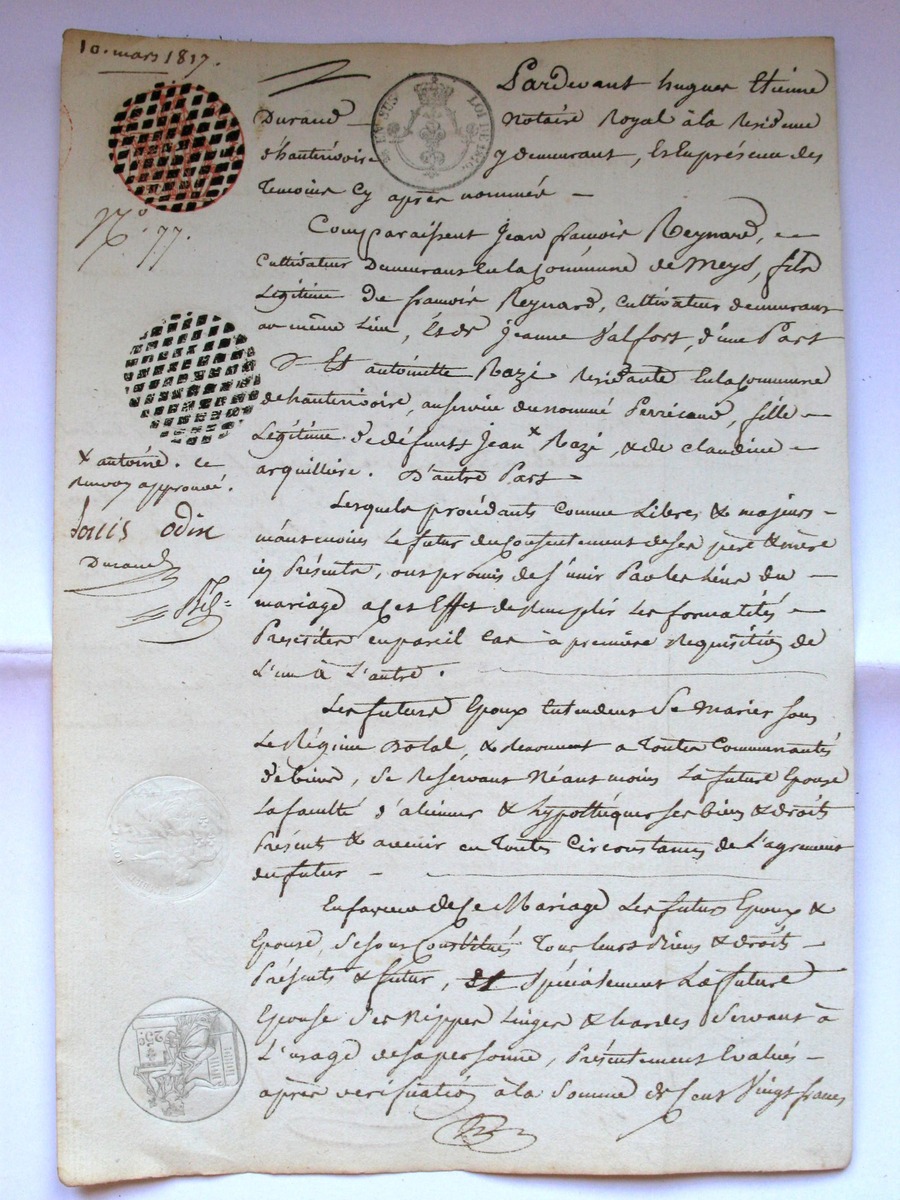 10. mars 1817.
Pardevant hugues Etienne
Durand notaire Royal à la Residence
d'hauterivoire y demeurant, Et En présence des
Temoins Cy après nommés —
N.° 77.
Comparaissent Jean francois Reynard, —
Cultivateur Demeurant En la Commune de Meys, fils
Legitime De francois Reynard, Cultivateur demeurant
au même Lieu, Et de Jeanne Valfort, d'une Part
Et antoinette Razi Residante En la Commune
de hauterivoire, au service du nommé Perricaud, fille —
Legitime de défunts Jean x Razi, & de Claudine —
arquilliere. D'autre Part —
x antoine. ce
renvoy approuvé.
Louis odin
Durand
Lesquels procédants Comme Libres & majeurs —
néantmoins Le futur du Consentement de ses père & mère
icy Présents, ont promis de s'unir Par les Liens du —
mariage a Cet Effet de Remplir Les formalités —
Prescrites En pareil Cas à première Requisition de
L'un à L'autre.
Les futurs Epoux Entendent Se Marier sous
Le Régime Dotal, & Renoncent a Toutes Communautés
de biens, Se Reservant Néantmoins La future Epouse
La faculté d'aliener & hypothéquer ses biens & droits
Présents & avenir en Toutes Circonstances de L'agrement
du futur —
En faveur de Ce Mariage Les futurs Epoux &
Epouse, Se sont Constitués Tous leurs Biens & droits —
Présents & futur, et Spécialement La future
Epouse Ses Nippes Linges & hardes Servant à
L'usage de sa personne, Présentement Evalués —
après verification à la Somme de Cent Vingt francs
25c